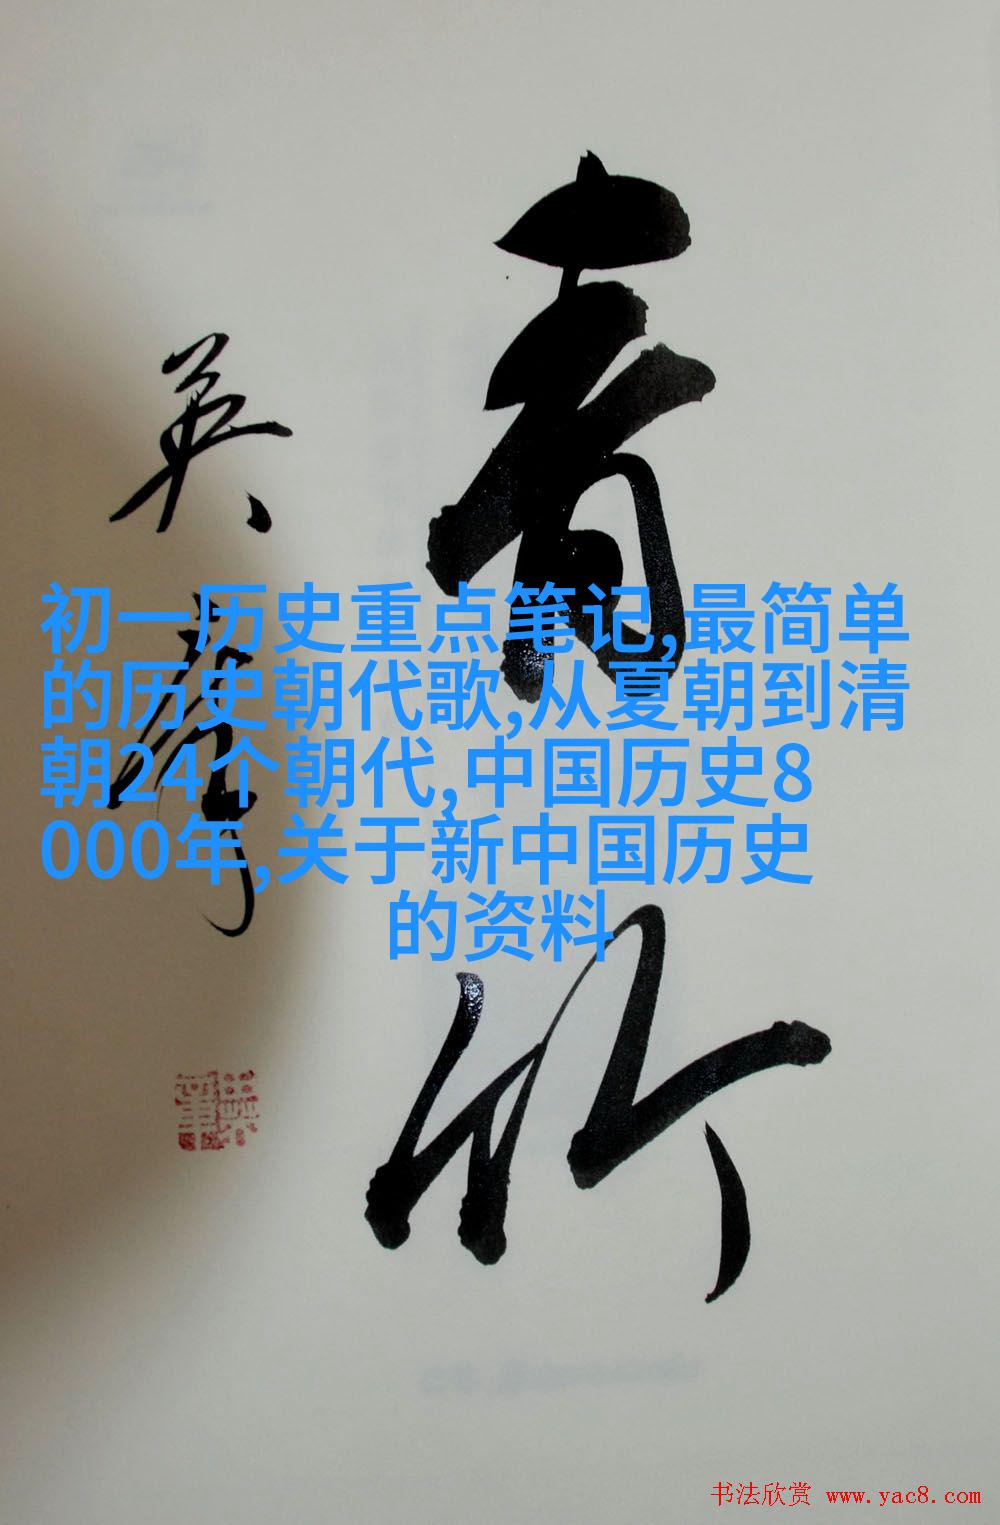 青竹
英
初一历史重点笔记,最简单
的历史朝代歌,从夏朝到清
朝24个朝代,中国历史8
000年,关于新中国历史
的资料
书法欣赏 www.yac8.com